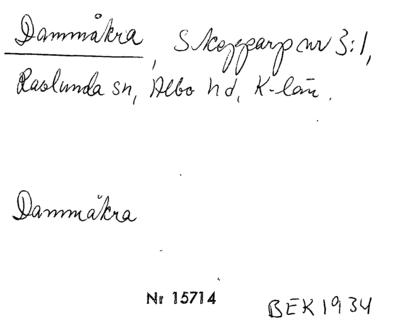 Dammåkra, Skepparp nr 3:1,
Ravlunda sn, Albo hd, K-län.
Dammåkra
Nr 15714
BEK 1934